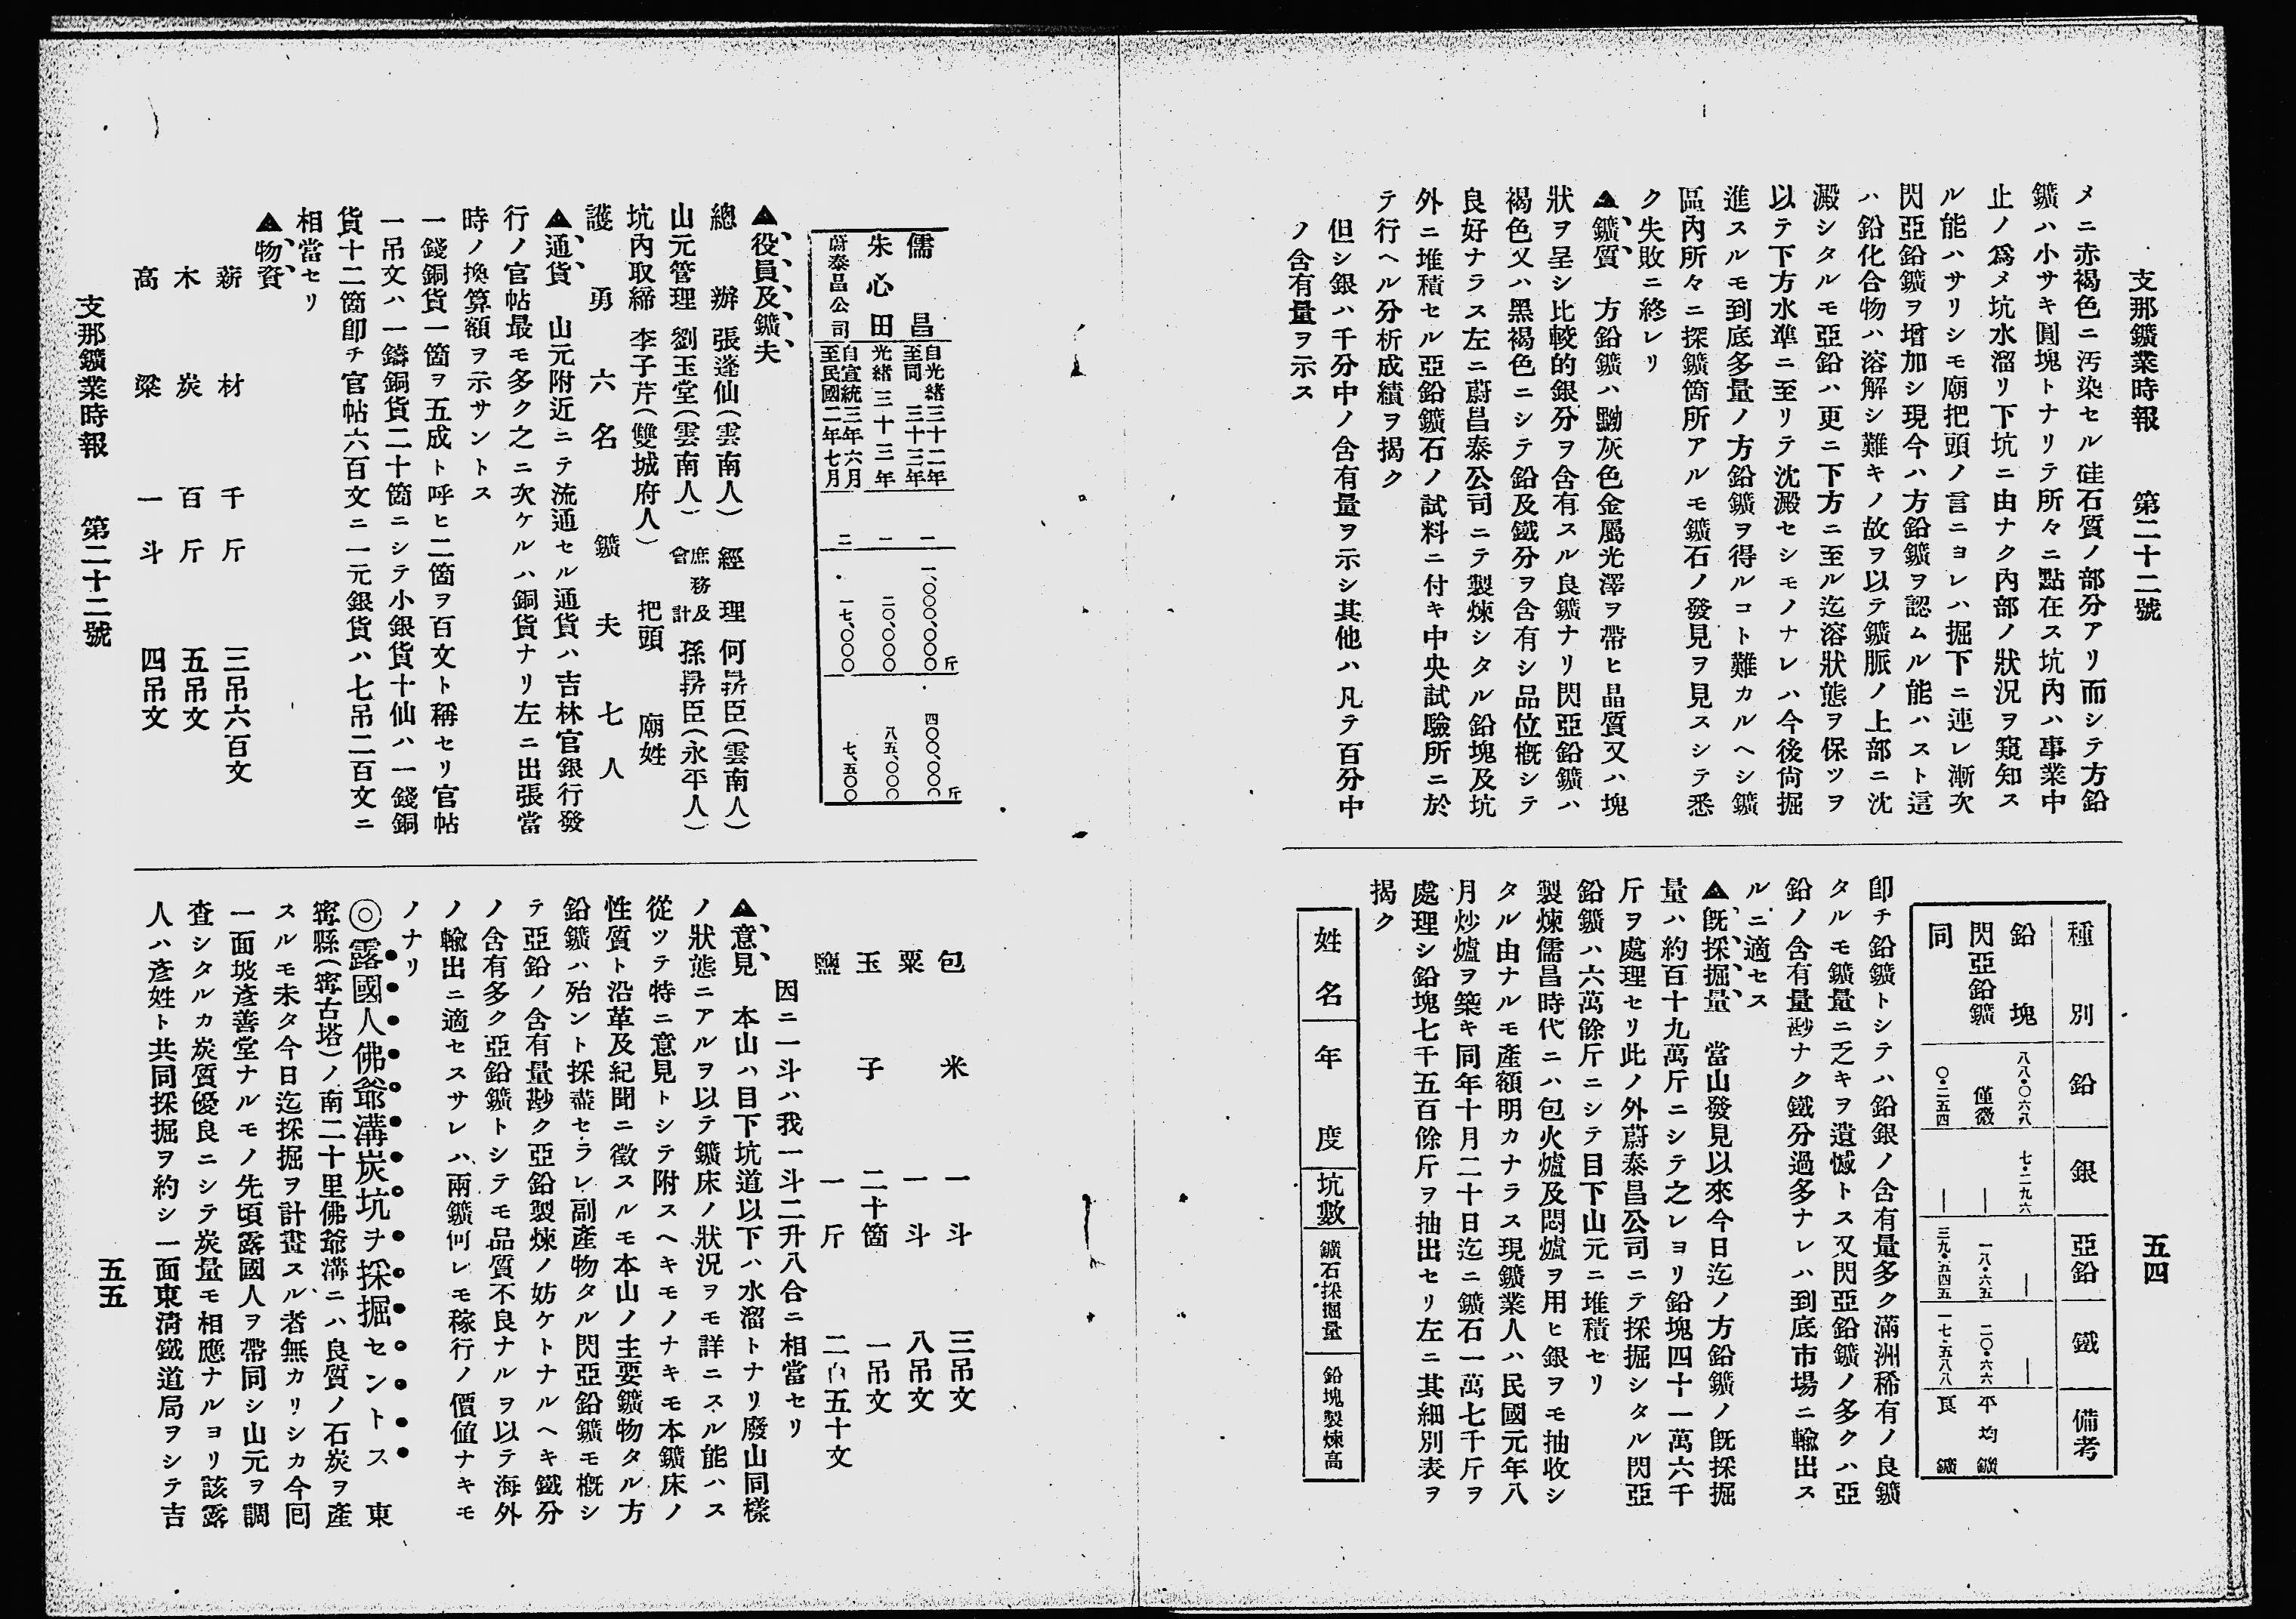 支那鑛業時報　第二十二號
五四
メニ赤褐色ニ汚染セル硅石質ノ部分アリ而シテ方鉛
鑛ハ小サキ圓塊トナリテ所々ニ點在ス坑內ハ事業中
止ノ爲メ坑水溜リ下坑ニ由ナク內部ノ狀況ヲ窺知ス
ル能ハサリシモ廟把頭ノ言ニヨレハ掘下ニ連レ漸次
閃亞鉛鑛ヲ增加シ現今ハ方鉛鑛ヲ認ムル能ハスト這
ハ鉛化合物ハ溶解シ難キノ故ヲ以テ鑛脈ノ上部ニ沈
澱シタルモ亞鉛ハ更ニ下方ニ至ル迄溶狀態ヲ保ツヲ
以テ下方水準ニ至リテ沈澱セシモノナレハ今後尙掘
進スルモ到底多量ノ方鉛鑛ヲ得ルコト難カルヘシ鑛
區內所々ニ探鑛箇所アルモ鑛石ノ發見ヲ見スシテ悉
ク失敗ニ終レリ
▲鑛質　方鉛鑛ハ黝灰色金屬光澤ヲ帶ヒ晶質又ハ塊
狀ヲ呈シ比較的銀分ヲ含有スル良鑛ナリ閃亞鉛鑛ハ
褐色又ハ黑褐色ニシテ鉛及鐵分ヲ含有シ品位槪シテ
良好ナラス左ニ蔚昌泰公司ニテ製煉シタル鉛塊及坑
外ニ堆積セル亞鉛鑛石ノ試料ニ付キ中央試驗所ニ於
テ行ヘル分析成績ヲ揭ク
但シ銀ハ千分中ノ含有量ヲ示シ其他ハ凡テ百分中
ノ含有量ヲ示ス
種別　鉛　銀　亞鉛　鐵　備考
鉛塊　八八・〇六八　七・二九六　—　—
閃亞鉛鑛　僅微　—　一八・六五　二〇・六六　平均鑛
同　〇・二五四　—　三九・五四五　一七・五八八　良鑛
卽チ鉛鑛トシテハ鉛銀ノ含有量多ク滿洲稀有ノ良鑛
タルモ鑛量ニ乏キヲ遺憾トス又閃亞鉛鑛ノ多クハ亞
鉛ノ含有量尠ナク鐵分過多ナレハ到底市場ニ輸出ス
ルニ適セス
▲旣採掘量　當山發見以來今日迄ノ方鉛鑛ノ旣採掘
量ハ約百十九萬斤ニシテ之レヨリ鉛塊四十一萬六千
斤ヲ處理セリ此ノ外蔚泰昌公司ニテ採掘シタル閃亞
鉛鑛ハ六萬餘斤ニシテ目下山元ニ堆積セリ
製煉儒昌時代ニハ包火爐及悶爐ヲ用ヒ銀ヲモ抽收シ
タル由ナルモ產額明カナラス現鑛業人ハ民國元年八
月炒爐ヲ築キ同年十月二十日迄ニ鑛石一萬七千斤ヲ
處理シ鉛塊七千五百餘斤ヲ抽出セリ左ニ其細別表ヲ
揭ク
姓名　年度　坑數　鑛石採掘量　鉛塊製煉高
儒昌　自光緖三十二年至同三十三年　一　一、〇〇〇、〇〇〇斤　四〇〇、〇〇〇斤
朱心田　光緖三十三年　一　二〇、〇〇〇　八五、〇〇〇
蔚泰昌公司　自宣統三年六月至民國二年七月　二　一七、〇〇〇　七、五〇〇
▲役員及鑛夫
總辦　張蓬仙（雲南人）　經理　何昇臣（雲南人）
山元管理　劉玉堂（雲南人）　庶務及會計　孫昇臣（永平人）
坑內取締　李子芹（雙城府人）　把頭　廟姓
護勇　六名　鑛夫　七人
▲通貨　山元附近ニテ流通セル通貨ハ吉林官銀行發
行ノ官帖最モ多ク之ニ次ケルハ銅貨ナリ左ニ出張當
時ノ換算額ヲ示サントス
一錢銅貨一箇ヲ五成ト呼ヒ二箇ヲ百文ト稱セリ官帖
一吊文ハ一鑄銅貨二十箇ニシテ小銀貨十仙ハ一錢銅
貨十二箇卽チ官帖六百文ニ一元銀貨ハ七吊二百文ニ
相當セリ
▲物資
薪材　千斤　三吊六百文
木炭　百斤　五吊文
高粱　一斗　四吊文
包米　一斗　三吊文
粟　一斗　八吊文
玉子　二十箇　一吊文
鹽　一斤　二百五十文
因ニ一斗ハ我一斗二升八合ニ相當セリ
▲意見　本山ハ目下坑道以下ハ水溜トナリ廢山同樣
ノ狀態ニアルヲ以テ鑛床ノ狀況ヲモ詳ニスル能ハス
從ツテ特ニ意見トシテ附スヘキモノナキモ本鑛床ノ
性質ト沿革及紀聞ニ徵スルモ本山ノ主要鑛物タル方
鉛鑛ハ殆ント採盡セラレ副產物タル閃亞鉛鑛モ槪シ
テ亞鉛ノ含有量尠ク亞鉛製煉ノ妨ケトナルヘキ鐵分
ノ含有多ク亞鉛鑛トシテモ品質不良ナルヲ以テ海外
ノ輸出ニ適セスサレハ兩鑛何レモ稼行ノ價値ナキモ
ノナリ
◎露國人佛爺溝炭坑ヲ採掘セントス　東
寗縣（寗古塔）ノ南二十里佛爺溝ニハ良質ノ石炭ヲ產
スルモ未タ今日迄採掘ヲ計畫スル者無カリシカ今囘
一面坡彥善堂ナルモノ先頃露國人ヲ帶同シ山元ヲ調
查シタルカ炭質優良ニシテ炭量モ相應ナルヨリ該露
人ハ彥姓ト共同採掘ヲ約シ一面東淸鐵道局ヲシテ吉
支那鑛業時報　第二十二號
五五